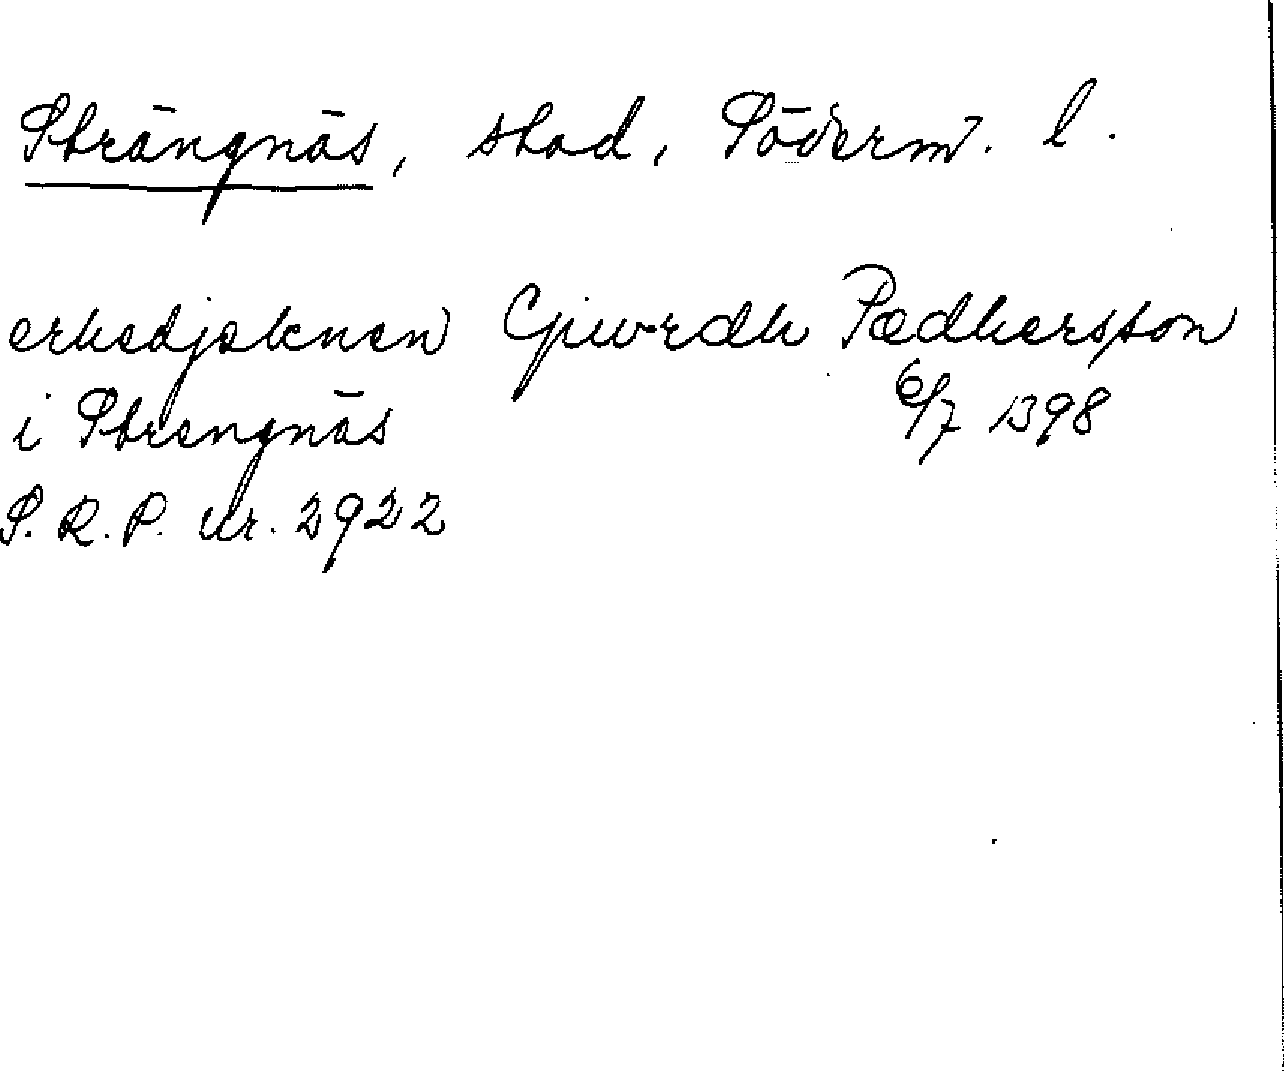 Strängnäs, stad, Söderm. l.
erkedjeknen Gjurdh Pædhersson
i Strengnäs 6/7 1398
S. R. P. nr. 2922